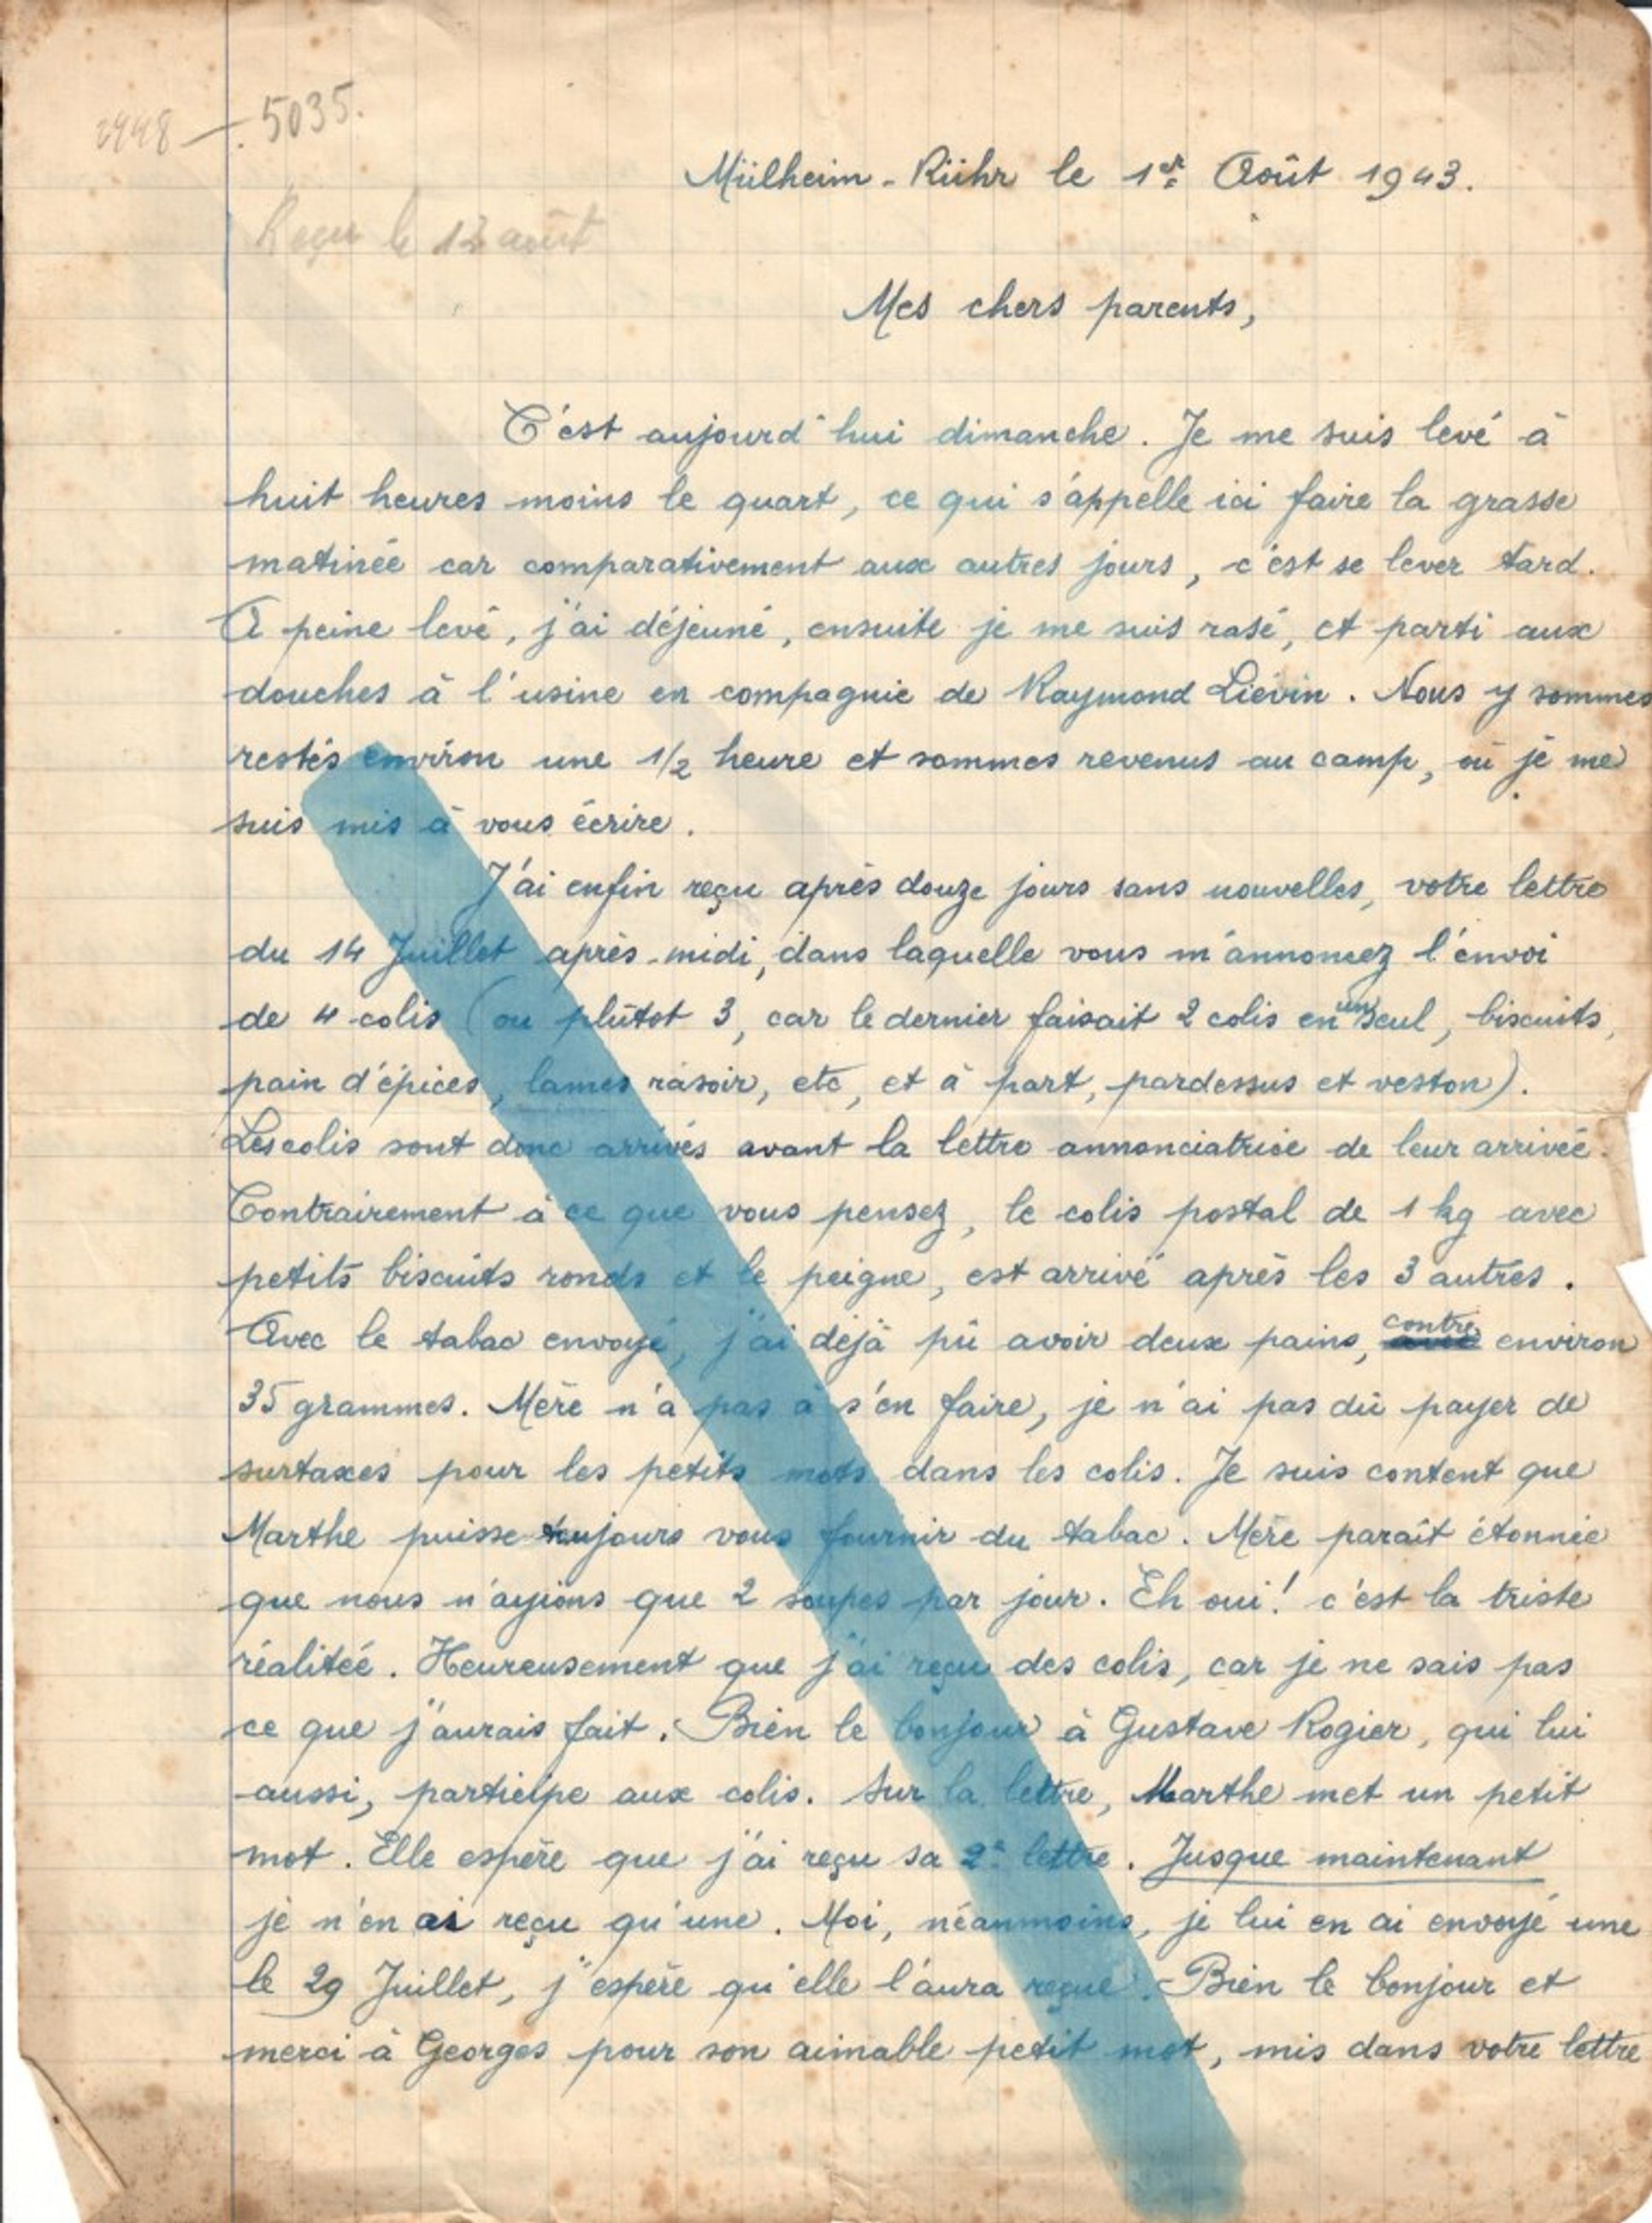 2448 — . 5035.
Mülheim - Rühr le 1er Août 1943.
Reçu le 12 août
Mes chers parents,
C'est aujourd'hui dimanche. Je me suis levé à
huit heures moins le quart, ce qui s'appelle ici faire la grasse
matinée car comparativement aux autres jours, c'est se lever tard.
A peine levé, j'ai déjeuné, ensuite je me suis rasé, et parti aux
douches à l'usine en compagnie de Raymond Liévin. Nous y sommes
restés environ une 1/2 heure et sommes revenus au camp, où je me
suis mis à vous écrire.
J'ai enfin reçu après douze jours sans nouvelles, votre lettre
du 14 Juillet après-midi, dans laquelle vous m'annoncez l'envoi
de 4 colis (ou plûtot 3, car le dernier faisait 2 colis en un seul, biscuits,
pain d'épices, lames rasoir, etc, et à part, pardessus et veston).
Les colis sont donc arrivés avant la lettre annonciatrice de leur arrivée.
Contrairement à ce que vous pensez, le colis postal de 1 kg avec
petits biscuits ronds et le peigne, est arrivé après les 3 autres.
Avec le tabac envoyé, j'ai déjà pû avoir deux pains, contre environ
35 grammes. Mère n'a pas à s'en faire, je n'ai pas dû payer de
surtaxes pour les petits mots dans les colis. Je suis content que
Marthe puisse toujours vous fournir du tabac. Mère paraît étonnée
que nous n'ayions que 2 soupes par jour. Eh oui! c'est la triste
réalitée. Heureusement que j'ai reçu des colis, car je ne sais pas
ce que j'aurais fait. Bien le bonjour à Gustave Rogier, qui lui
aussi, participe aux colis. Sur la lettre, Marthe met un petit
mot. Elle espère que j'ai reçu sa 2e lettre. Jusque maintenant
je n'en ai reçu qu'une. Moi, néanmoins, je lui en ai envoyé une
le 29 Juillet, j'espère qu'elle l'aura reçue. Bien le bonjour et
merci à Georges pour son aimable petit mot, mis dans votre lettre